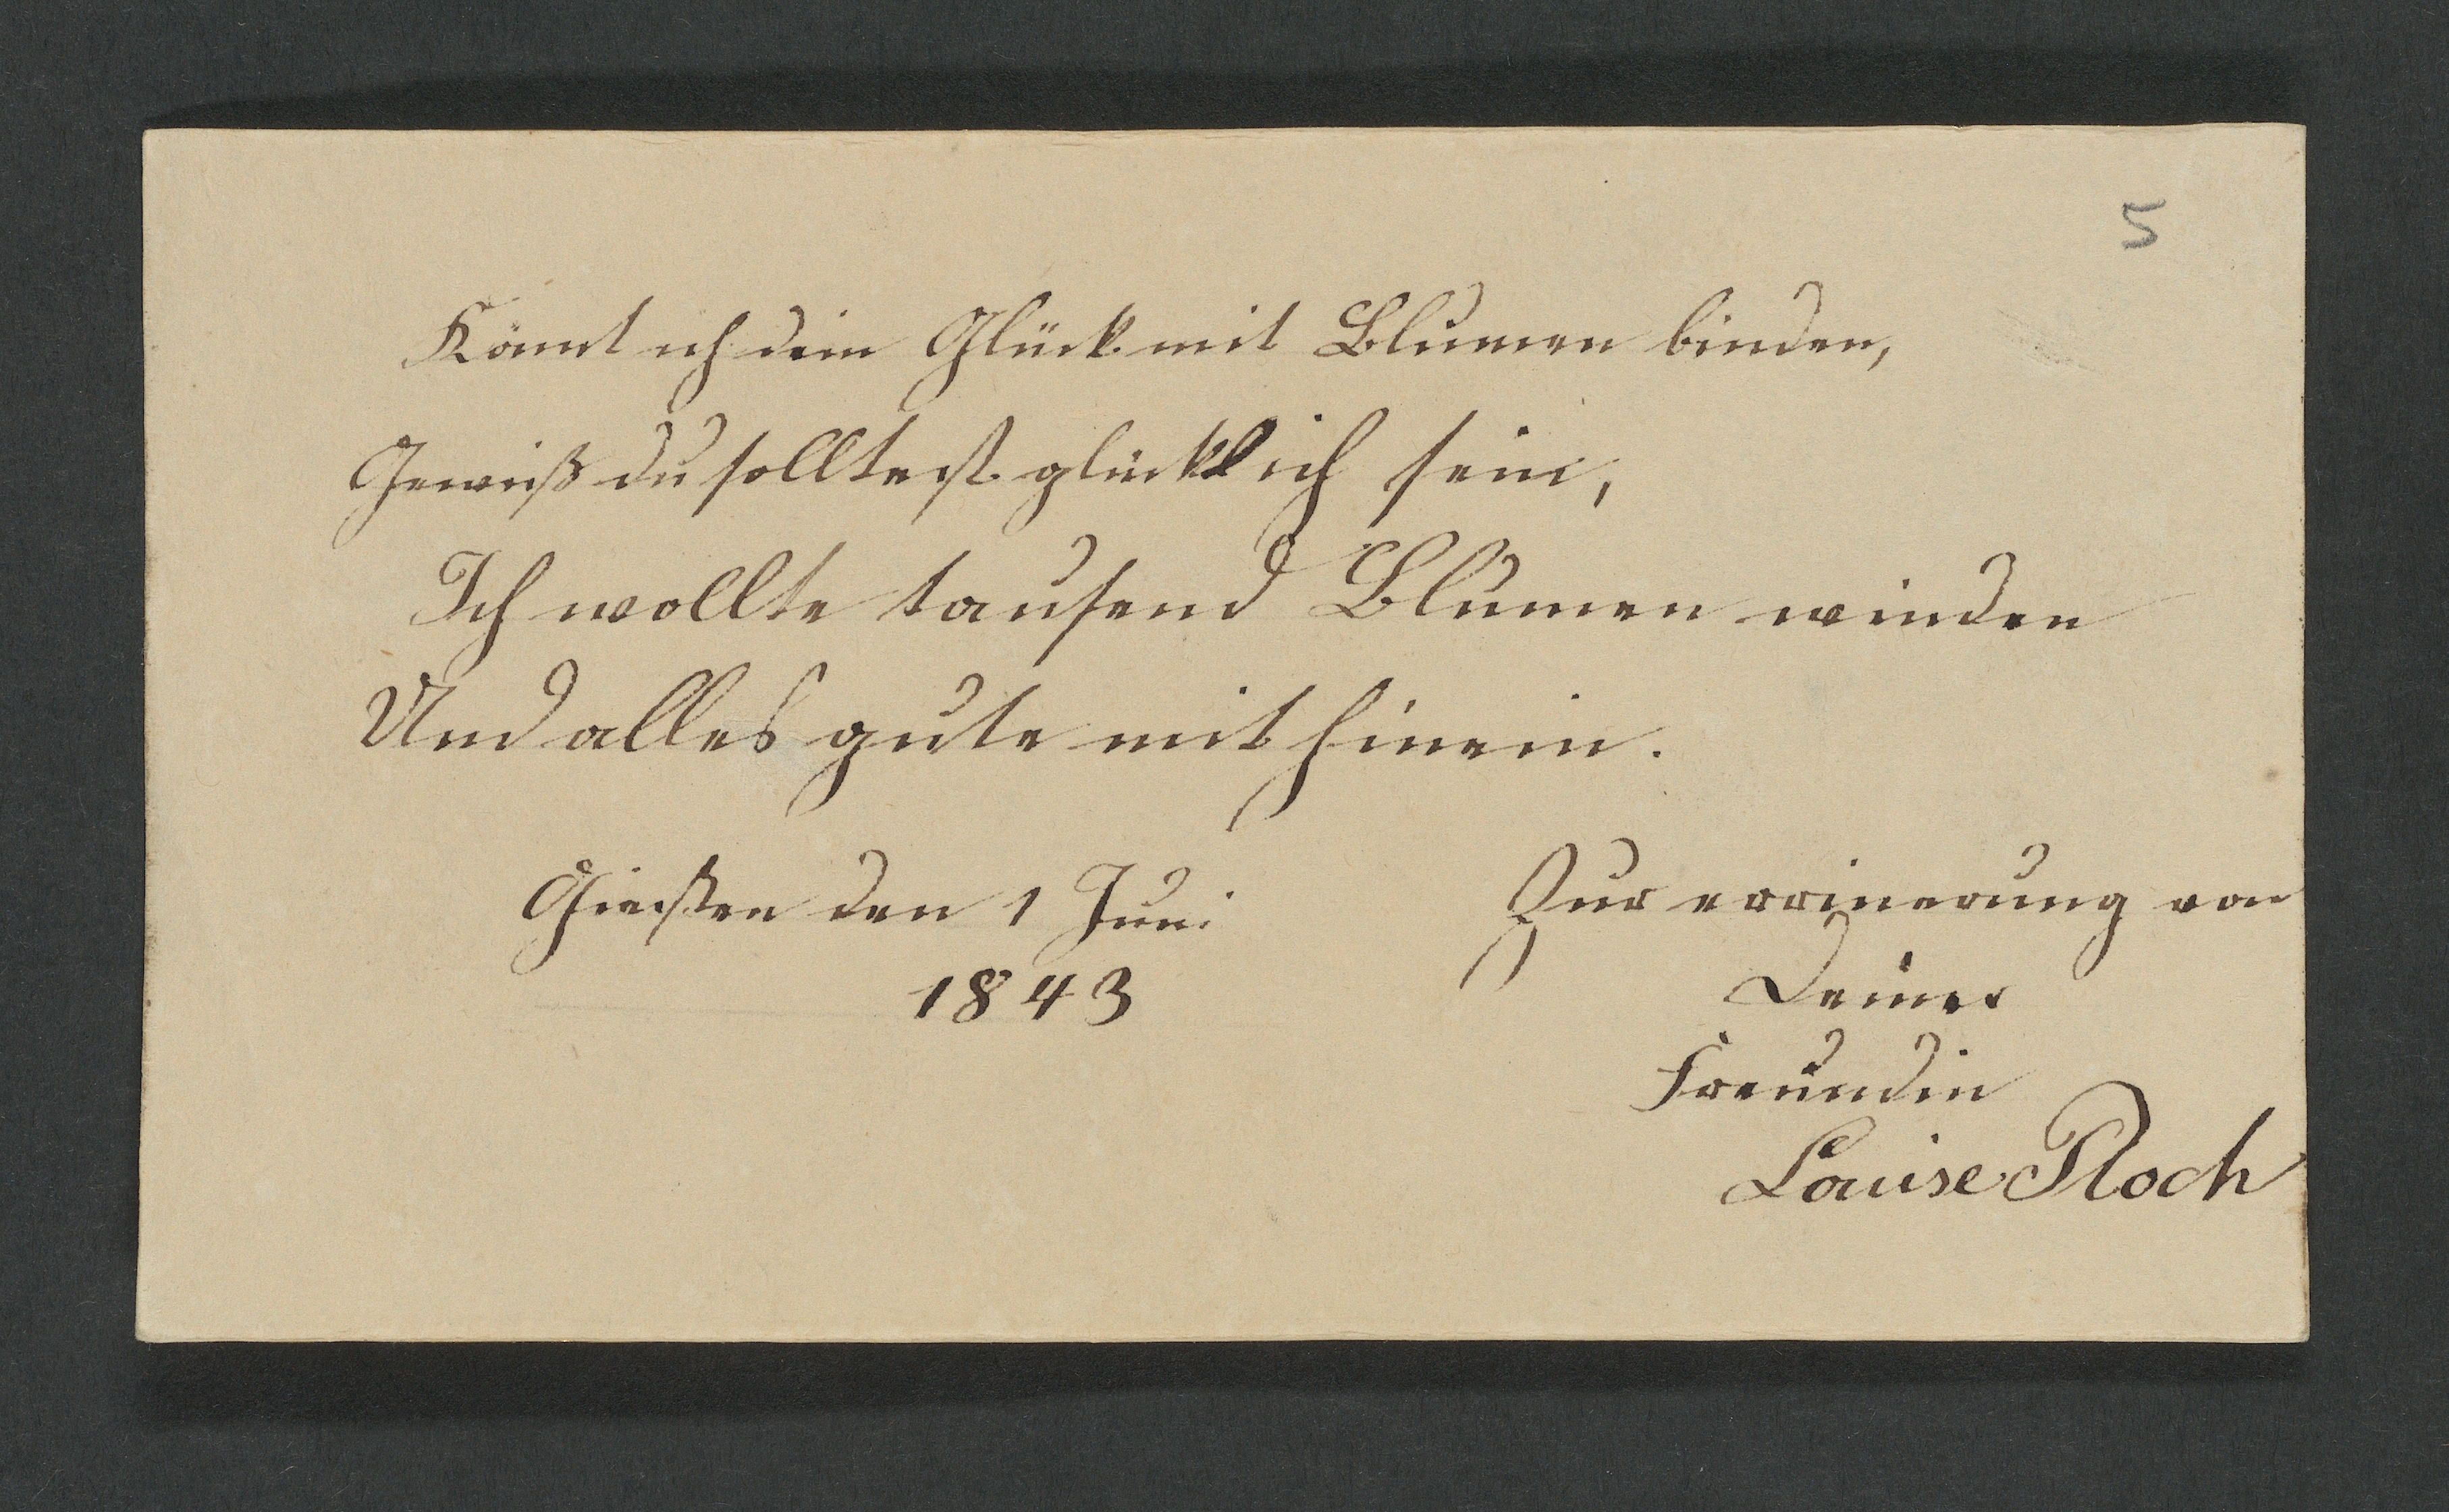 5
Könnt ich dein Glück mit Blumen binden,
Gewiß du solltest glücklich sein,
Ich wollte tausend Blumen winden
Und alles gute mit hinein.
Giesßen den 1 Juni
1843
Zur errinerung von
Deiner
Freundin
Louise Ploch